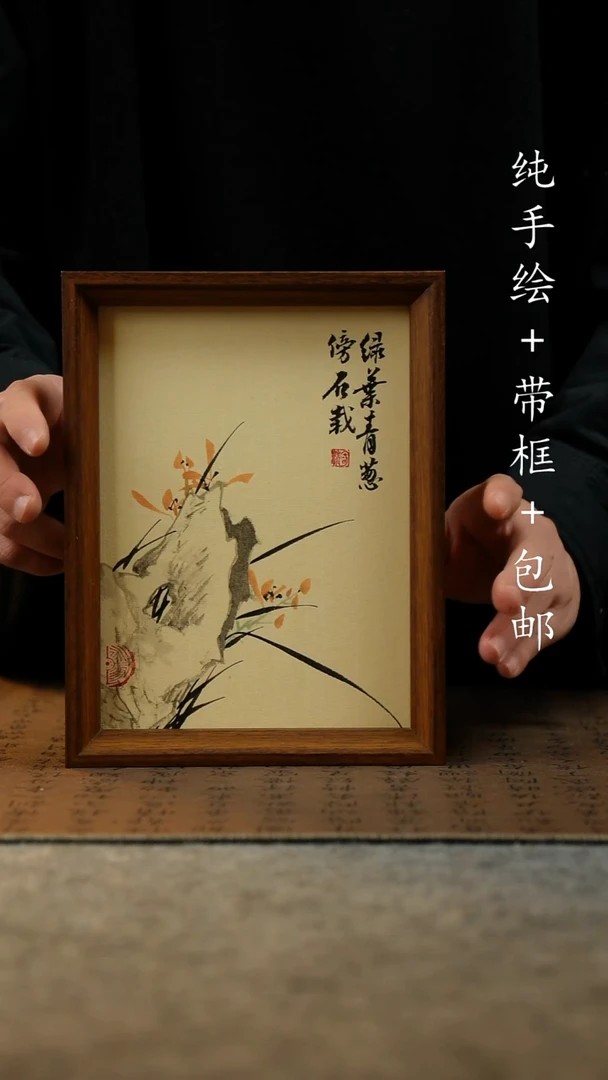 绿葉青葱
傍石栽
纯手绘+带框+包邮